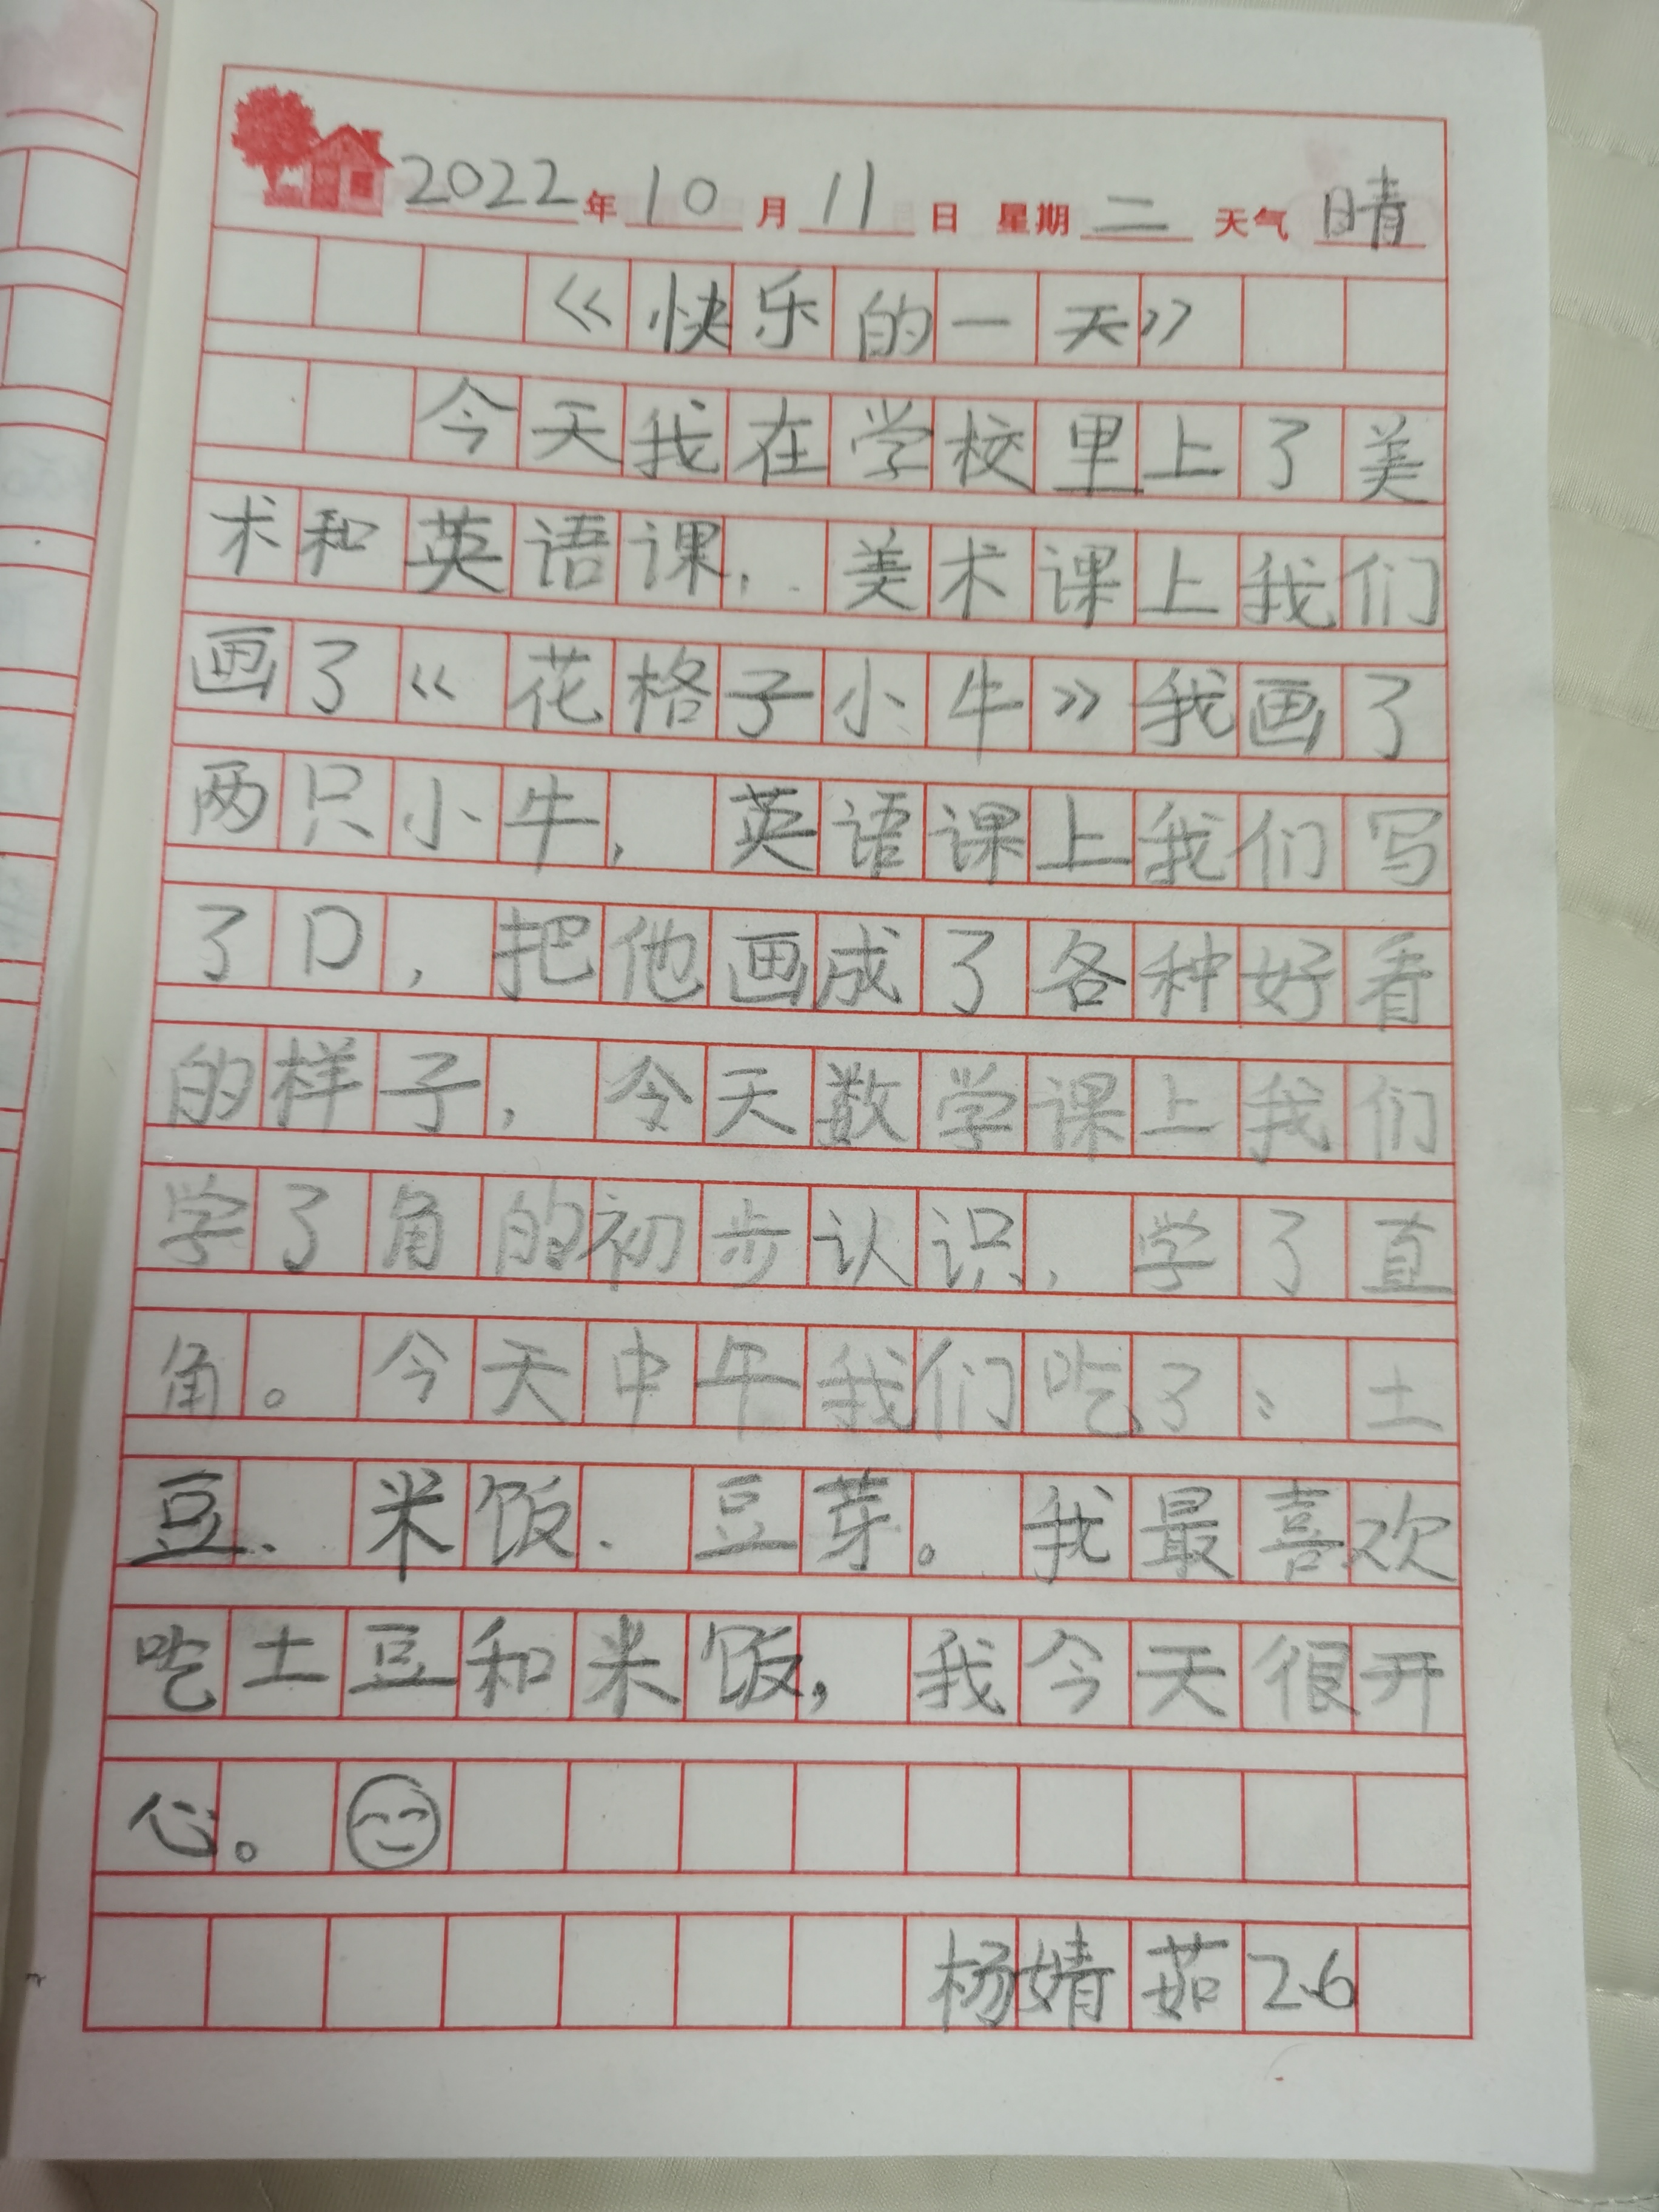 2022年10月11日 星期二 天气 晴
《快乐的一天》
今天我在学校里上了美
术和英语课，美术课上我们
画了《花格子小牛》我画了
两只小牛，英语课上我们写
了D，把他画成了各种好看
的样子，今天数学课上我们
学了角的初步认识，学了直
角。今天中午我们吃了：土
豆、米饭、豆芽。我最喜欢
吃土豆和米饭，我今天很开
心。
杨婧茹2.6